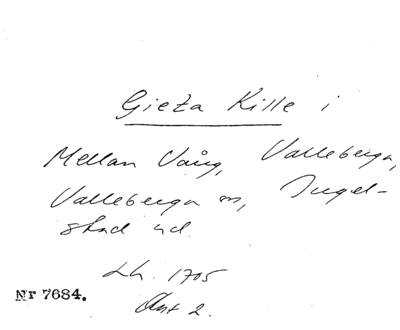 Gieta Kille i
Mellan Vång, Valleberga,
Valleberga sn, Ingel-
stad hd.
Lh. 1705
Nr 7684.
Akt 2.